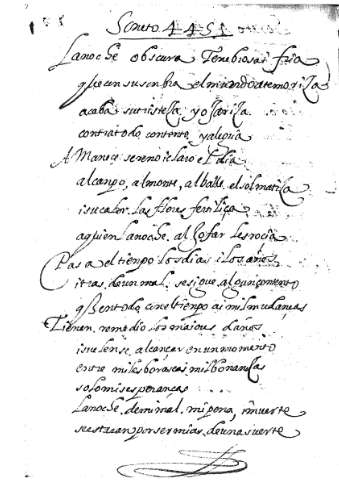 Soneto 4451
La noche obscura Tenebrosa i fria
q̃ con su sombra el mundo atemoriça
acaba su tristeça y
contra todo contento, y alegria
A Manece sereno i claro el dia
al canpo, al monte, al balle, el sol matiça
i su calor. las flores fertiliça
a quien la noche. aljofar les rocia
Pasa el tiempo los dias i los años
itras. de un mal. se sigue. algun contento
q̃ En todo cine el tiempo ai mil mudanças
Tienen. remedio los maiores daños
i suelense. alcançar en un momento
entre mil borascas mil bonanças
solo mis esperanças
la noche. de mi mal. mi pena, i muerte
se estaran por ser mias. de una suerte